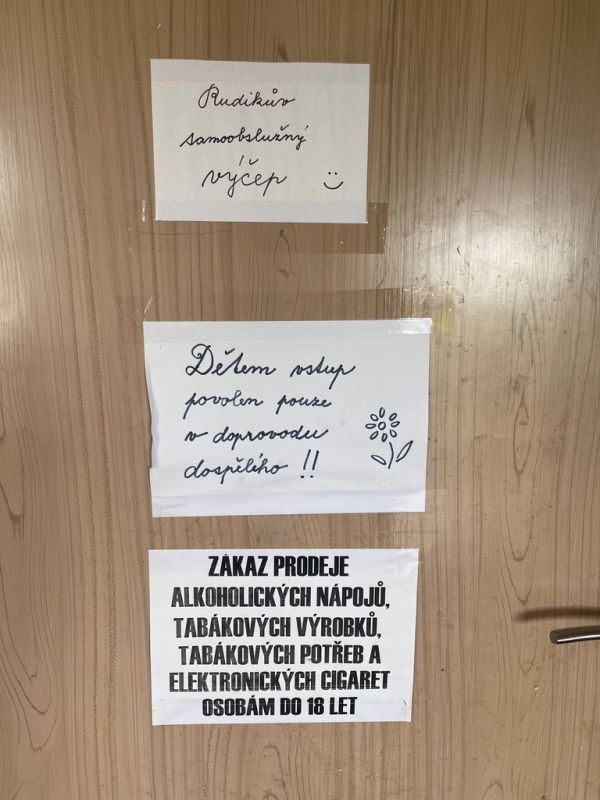 Rudikův
samoobslužný
výčep
Dětem vstup
povolen pouze
v doprovodu
dospělího !!
ZÁKAZ PRODEJE
ALKOHOLICKÝCH NÁPOJŮ,
TABÁKOVÝCH VÝROBKŮ,
TABÁKOVÝCH POTŘEB A
ELEKTRONICKÝCH CIGARET
OSOBÁM DO 18 LET